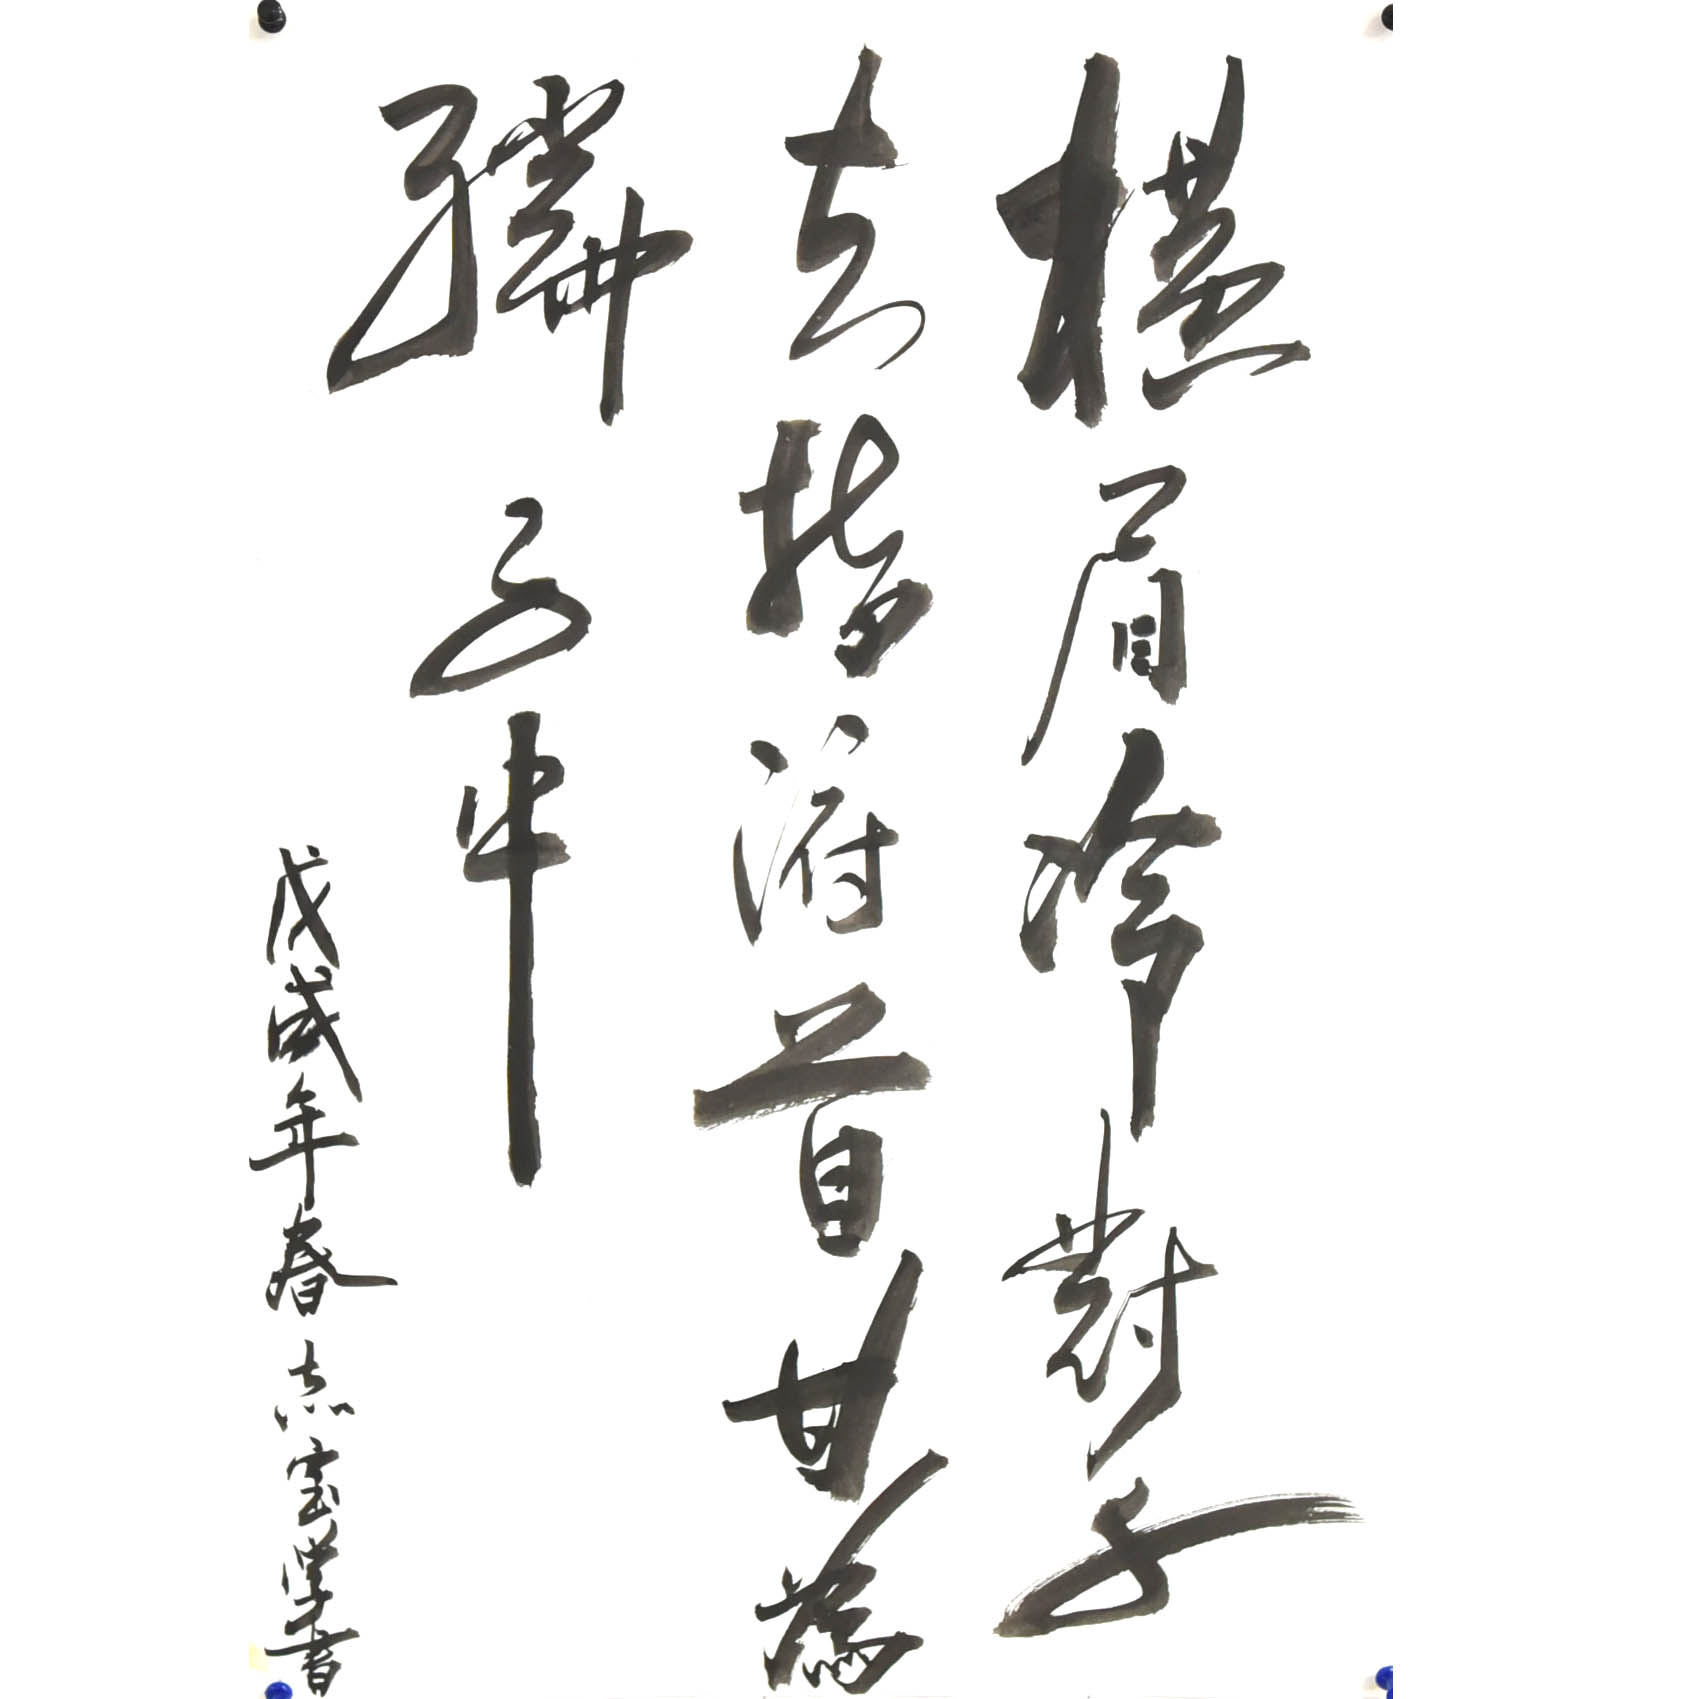 横眉冷對千
夫指俯首甘為
孺子牛
戊戌年春志宝学書